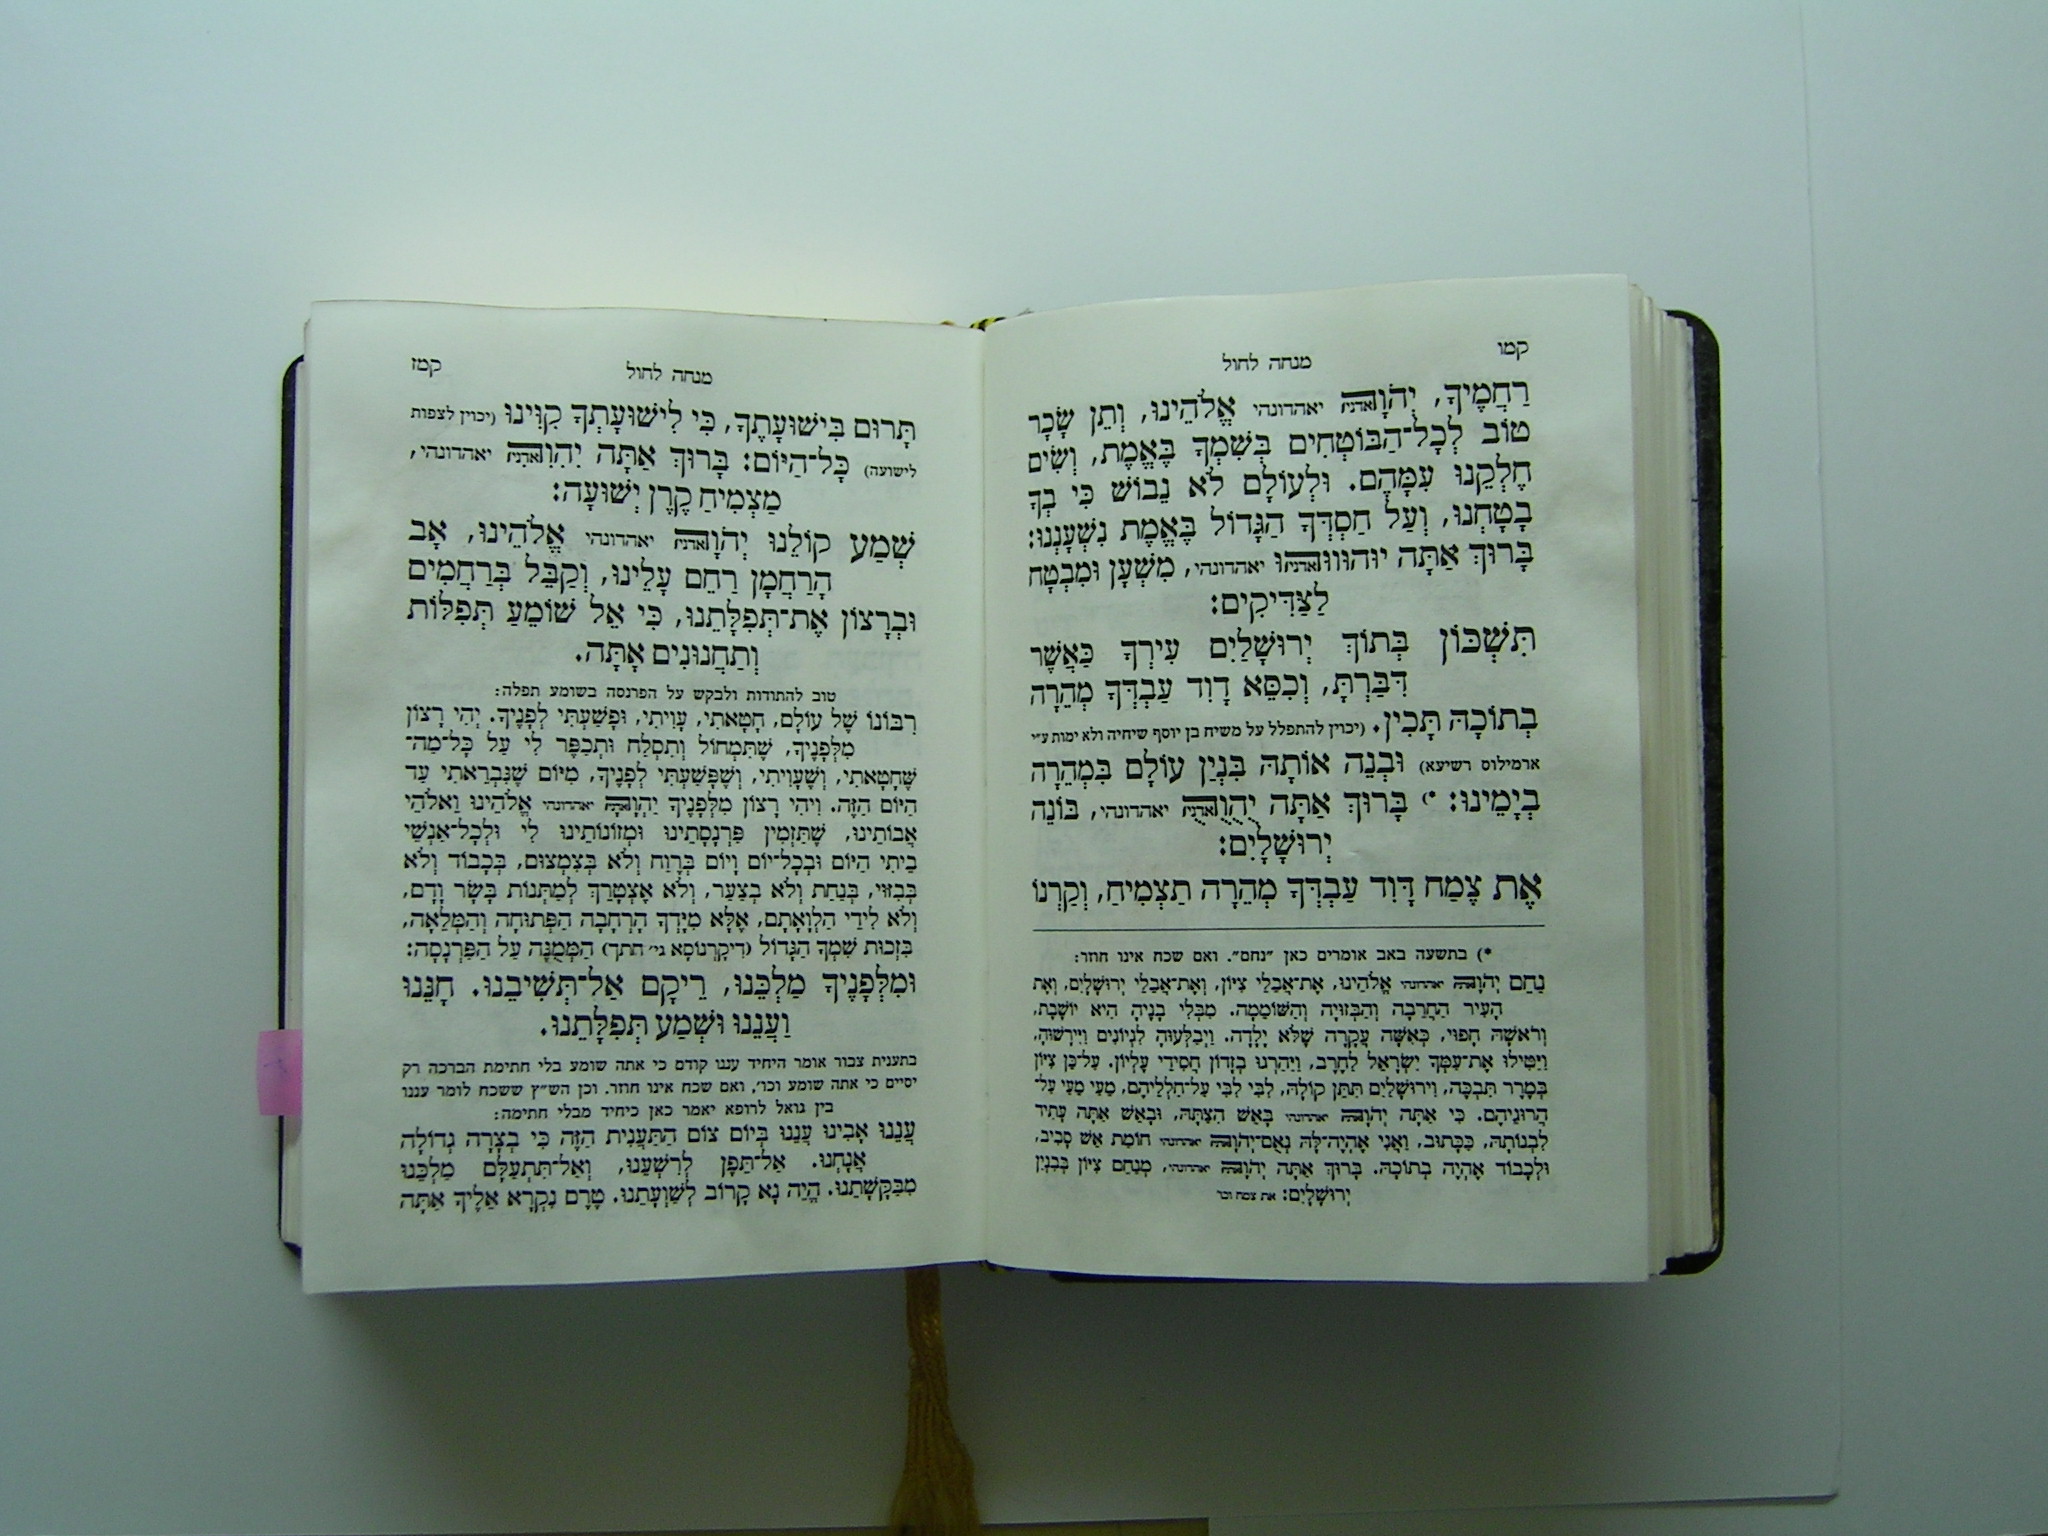 קמו
מנחה לחול
רַחֲמֶיךָ, יְהֹוָה יאהדונהי אֱלֹהֵינוּ, וְתֵן שָׂכָר
טוֹב לְכָל־הַבּוֹטְחִים בְּשִׁמְךָ בֶּאֱמֶת, וְשִׂים
חֶלְקֵנוּ עִמָּהֶם. וּלְעוֹלָם לֹא נֵבוֹשׁ כִּי בְךָ
בָטָחְנוּ, וְעַל חַסְדְּךָ הַגָּדוֹל בֶּאֱמֶת נִשְׁעָנְנוּ:
בָּרוּךְ אַתָּה יאהדונהי, מִשְׁעָן וּמִבְטָח
לַצַּדִּיקִים:
תִּשְׁכּוֹן בְּתוֹךְ יְרוּשָׁלַיִם עִירְךָ כַּאֲשֶׁר
דִּבַּרְתָּ, וְכִסֵּא דָוִד עַבְדְּךָ מְהֵרָה
בְתוֹכָהּ תָּכִין. (יכוין להתפלל על משיח בן יוסף שיחיה ולא ימות ע״י
ארמילוס רשיעא) וּבְנֵה אוֹתָהּ בִּנְיַן עוֹלָם בִּמְהֵרָה
בְיָמֵינוּ: *) בָּרוּךְ אַתָּה יאהדונהי, בּוֹנֵה
יְרוּשָׁלָיִם:
אֶת צֶמַח דָּוִד עַבְדְּךָ מְהֵרָה תַצְמִיחַ, וְקַרְנוֹ
*) בתשעה באב אומרים כאן ״נחם״. ואם שכח אינו חוזר:
נַחֵם יְהֹוָה יאהדונהי אֱלֹהֵינוּ, אֶת־אֲבֵלֵי צִיּוֹן, וְאֶת־אֲבֵלֵי יְרוּשָׁלָיִם, וְאֶת
הָעִיר הַחֲרֵבָה וְהַבְּזוּיָה וְהַשּׁוֹמֵמָה. מִבְּלִי בָנֶיהָ הִיא יוֹשֶׁבֶת,
וְרֹאשָׁהּ חָפוּי, כְּאִשָּׁה עֲקָרָה שֶׁלֹּא יָלָדָה. וַיְבַלְּעוּהָ לִגְיוֹנִים וַיִּירָשׁוּהָ,
וַיַּטִּילוּ אֶת־עַמְּךָ יִשְׂרָאֵל לַחֶרֶב, וַיַּהַרְגוּ בְזָדוֹן חֲסִידֵי עֶלְיוֹן. עַל־כֵּן צִיּוֹן
בְּמָרָר תִּבְכֶּה, וִירוּשָׁלַיִם תִּתֵּן קוֹלָהּ, לִבִּי לִבִּי עַל־חַלְלֵיהֶם, מֵעַי מֵעַי עַל־
הֲרוּגֵיהֶם. כִּי אַתָּה יְהֹוָה יאהדונהי בָּאֵשׁ הִצַּתָּהּ, וּבָאֵשׁ אַתָּה עָתִיד
לִבְנוֹתָהּ, כַּכָּתוּב, וַאֲנִי אֶהְיֶה־לָּהּ נְאֻם־יְהֹוָה יאהדונהי חוֹמַת אֵשׁ סָבִיב,
וּלְכָבוֹד אֶהְיֶה בְתוֹכָהּ. בָּרוּךְ אַתָּה יְהֹוָה יאהדונהי, מְנַחֵם צִיּוֹן בְּבִנְיַן
יְרוּשָׁלָיִם: את צמח וכו׳
מנחה לחול
קמז
תָּרוּם בִּישׁוּעָתֶךָ, כִּי לִישׁוּעָתְךָ קִוִּינוּ (יכוין לצפות
לישועה) כָּל־הַיּוֹם: בָּרוּךְ אַתָּה יאהדונהי,
מַצְמִיחַ קֶרֶן יְשׁוּעָה:
שְׁמַע קוֹלֵנוּ יְהֹוָה יאהדונהי אֱלֹהֵינוּ, אָב
הָרַחֲמָן רַחֵם עָלֵינוּ, וְקַבֵּל בְּרַחֲמִים
וּבְרָצוֹן אֶת־תְּפִלָּתֵנוּ, כִּי אֵל שׁוֹמֵעַ תְּפִלּוֹת
וְתַחֲנוּנִים אָתָּה.
טוב להתודות ולבקש על הפרנסה בשומע תפלה:
רִבּוֹנוֹ שֶׁל עוֹלָם, חָטָאתִי, עָוִיתִי, וּפָשַׁעְתִּי לְפָנֶיךָ. יְהִי רָצוֹן
מִלְּפָנֶיךָ, שֶׁתִּמְחוֹל וְתִסְלַח וּתְכַפֵּר לִי עַל כָּל־מַה־
שֶּׁחָטָאתִי, וְשֶׁעָוִיתִי, וְשֶׁפָּשַׁעְתִּי לְפָנֶיךָ, מִיּוֹם שֶׁנִּבְרֵאתִי עַד
הַיּוֹם הַזֶּה. וִיהִי רָצוֹן מִלְּפָנֶיךָ יַהֲוָהָ יאהדונהי אֱלֹהֵינוּ וֵאלֹהֵי
אֲבוֹתֵינוּ, שֶׁתַּזְמִין פַּרְנָסָתֵינוּ וּמְזוֹנוֹתֵינוּ לִי וּלְכָל־אַנְשֵׁי
בֵיתִי הַיּוֹם וּבְכָל־יוֹם וָיוֹם בְּרֶוַח וְלֹא בְּצִמְצוּם, בְּכָבוֹד וְלֹא
בְּבִזּוּי, בְּנַחַת וְלֹא בְּצַעַר, וְלֹא אֶצְטָרֵךְ לְמַתְּנוֹת בָּשָׂר וָדָם,
וְלֹא לִידֵי הַלְוָאָתָם, אֶלָּא מִיָּדְךָ הָרְחָבָה הַפְּתוּחָה וְהַמְּלֵאָה,
בִּזְכוּת שִׁמְךָ הַגָּדוֹל (דִיקַרְנוֹסָא גי׳ חתך) הַמְמֻנֶּה עַל הַפַּרְנָסָה:
וּמִלְּפָנֶיךָ מַלְכֵּנוּ, רֵיקָם אַל־תְּשִׁיבֵנוּ. חָנֵּנוּ
וַעֲנֵנוּ וּשְׁמַע תְּפִלָּתֵנוּ.
בתענית צבור אומר היחיד עננו קודם כי אתה שומע בלי חתימת הברכה רק
יסיים כי אתה שומע וכו׳, ואם שכח אינו חוזר. וכן הש״ץ ששכח לומר עננו
בין גואל לרופא יאמר כאן כיחיד מבלי חתימה:
עֲנֵנוּ אָבִינוּ עֲנֵנוּ בְּיוֹם צוֹם הַתַּעֲנִית הַזֶּה כִּי בְצָרָה גְדוֹלָה
אֲנָחְנוּ. אַל־תֵּפֶן לְרִשְׁעֵנוּ, וְאַל־תִּתְעַלָּם מַלְכֵּנוּ
מִבַּקָּשָׁתֵנוּ. הֱיֵה נָא קָרוֹב לְשַׁוְעָתֵנוּ. טֶרֶם נִקְרָא אֵלֶיךָ אַתָּה